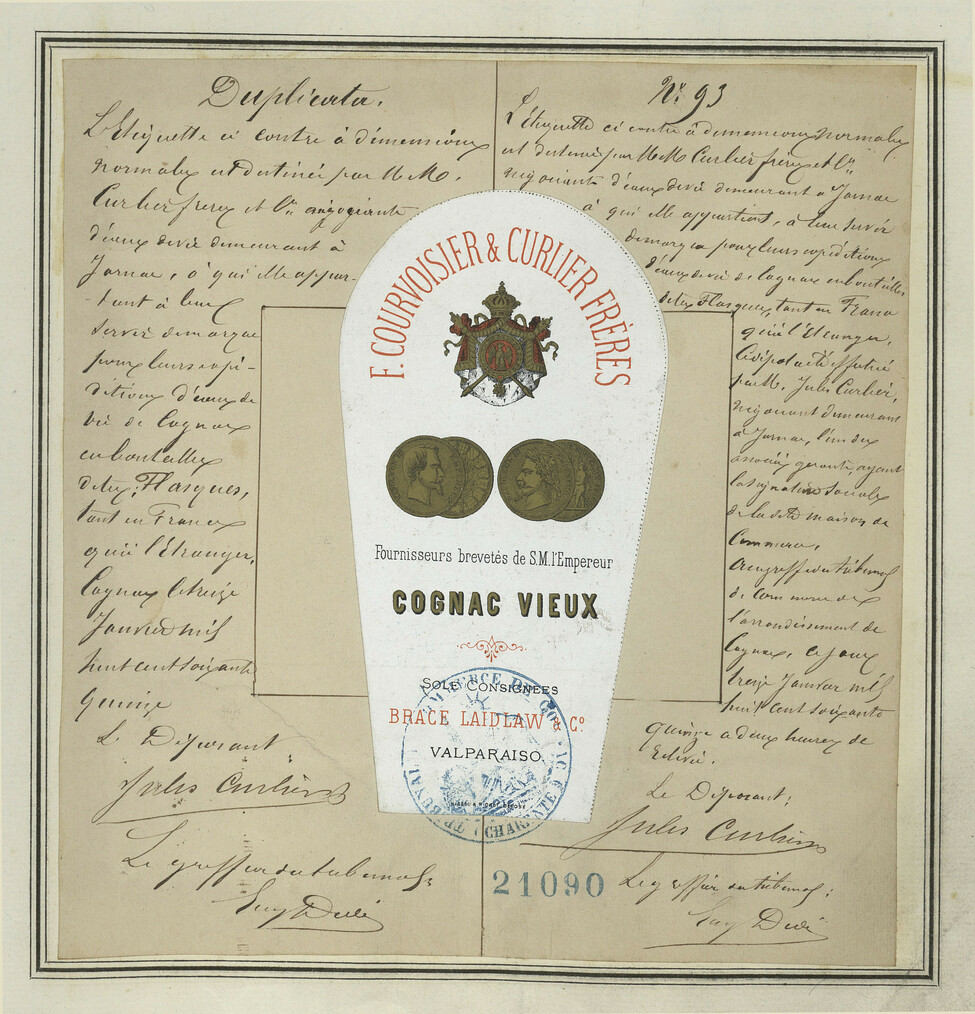 Duplicata.
L'Etiquette ci contre à dimensions
normales est destinée par M.M.
Curlier frères et Cie négociants
d'eaux de vie demeurant à
Jarnac, à qui elle appar-
-tient à leur
servir de marque
pour leurs expé-
ditions d'eaux de
vie de Cognac
en bouteilles
dites, Flasques,
tant en France
qu'à l'étranger,
Cognac le treize
Janvier mil
huit cent soixante
quinze
Le Déposant
Jules Curlier
Le greffier du tribunal;
No 93
L'étiquette ci contre à dimensions normales,
est destinée par M.M. Curlier frères et Cie
négociants d'eaux de vie demeurant à Jarnac
à qui elle appartient, à leur servir
de marque pour leurs expéditions
d'eaux de vie de Cognac en bouteilles
dites Flasques, tant en France
qu'à l'Etranger,
Le dépôt a été effectué
par M. Jules Curlier,
négociant demeurant
à Jarnac, l'un des
associés gérants, ayant
la signature sociale
de la dite maison de
Commerce,
au greffe du tribunal
de Commerce de
l'arrondissement de
Cognac, ce jour
treize Janvier mil
huit cent soixante
quinze à deux heures de
relevée.
Le Déposant;
Jules Curlier
Le greffier du tribunal;
F. COURVOISIER & CURLIER FRÈRES
Fournisseurs brevetés de S.M. l'Empereur
COGNAC VIEUX
SOLE CONSIGNEES
BRACE LAIDLAW & Co.
VALPARAISO.
TRIBUNAL COMMERCE DE COGNAC
(CHARENTE)
21090